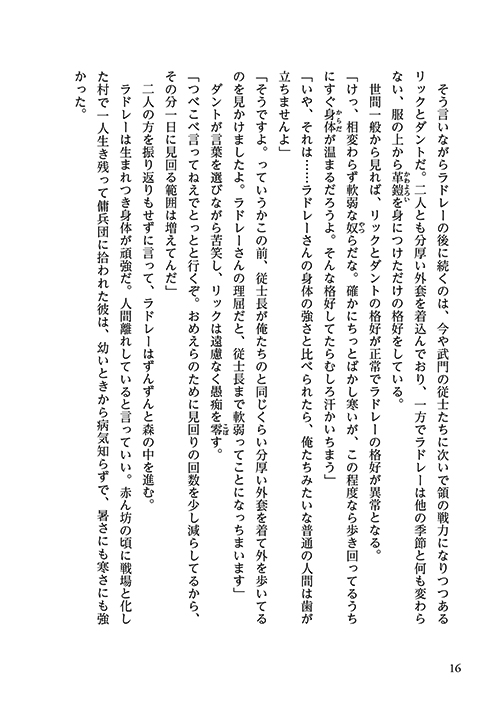 そう言いながらラドレーの後に続くのは、今や武門の従士たちに次いで領の戦力になりつつある
リックとダントだ。二人とも分厚い外套を着込んでおり、一方でラドレーは他の季節と何も変わら
ない、服の上から革鎧を身につけただけの格好をしている。
　世間一般から見れば、リックとダントの格好が正常でラドレーの格好が異常となる。
「けっ、相変わらず軟弱な奴らだな。確かにちっとばかし寒いが、この程度なら歩き回ってるうち
にすぐ身体が温まるだろうよ。そんな格好してたらむしろ汗かいちまう」
「いや、それは……ラドレーさんの身体の強さと比べられたら、俺たちみたいな普通の人間は歯が
立ちませんよ」
「そうですよ。っていうかこの前、従士長が俺たちのと同じくらい分厚い外套を着て外を歩いてる
のを見かけましたよ。ラドレーさんの理屈だと、従士長まで軟弱ってことになっちまいます」
　ダントが言葉を選びながら苦笑し、リックは遠慮なく愚痴を零す。
「つべこべ言ってねえでとっとと行くぞ。おめえらのために見回りの回数を少し減らしてるから、
その分一日に見回る範囲は増えてんだ」
　二人の方を振り返りもせずに言って、ラドレーはずんずんと森の中を進む。
　ラドレーは生まれつき身体が頑強だ。人間離れしていると言っていい。赤ん坊の頃に戦場と化し
た村で一人生き残って傭兵団に拾われた彼は、幼いときから病気知らずで、暑さにも寒さにも強
かった。
16